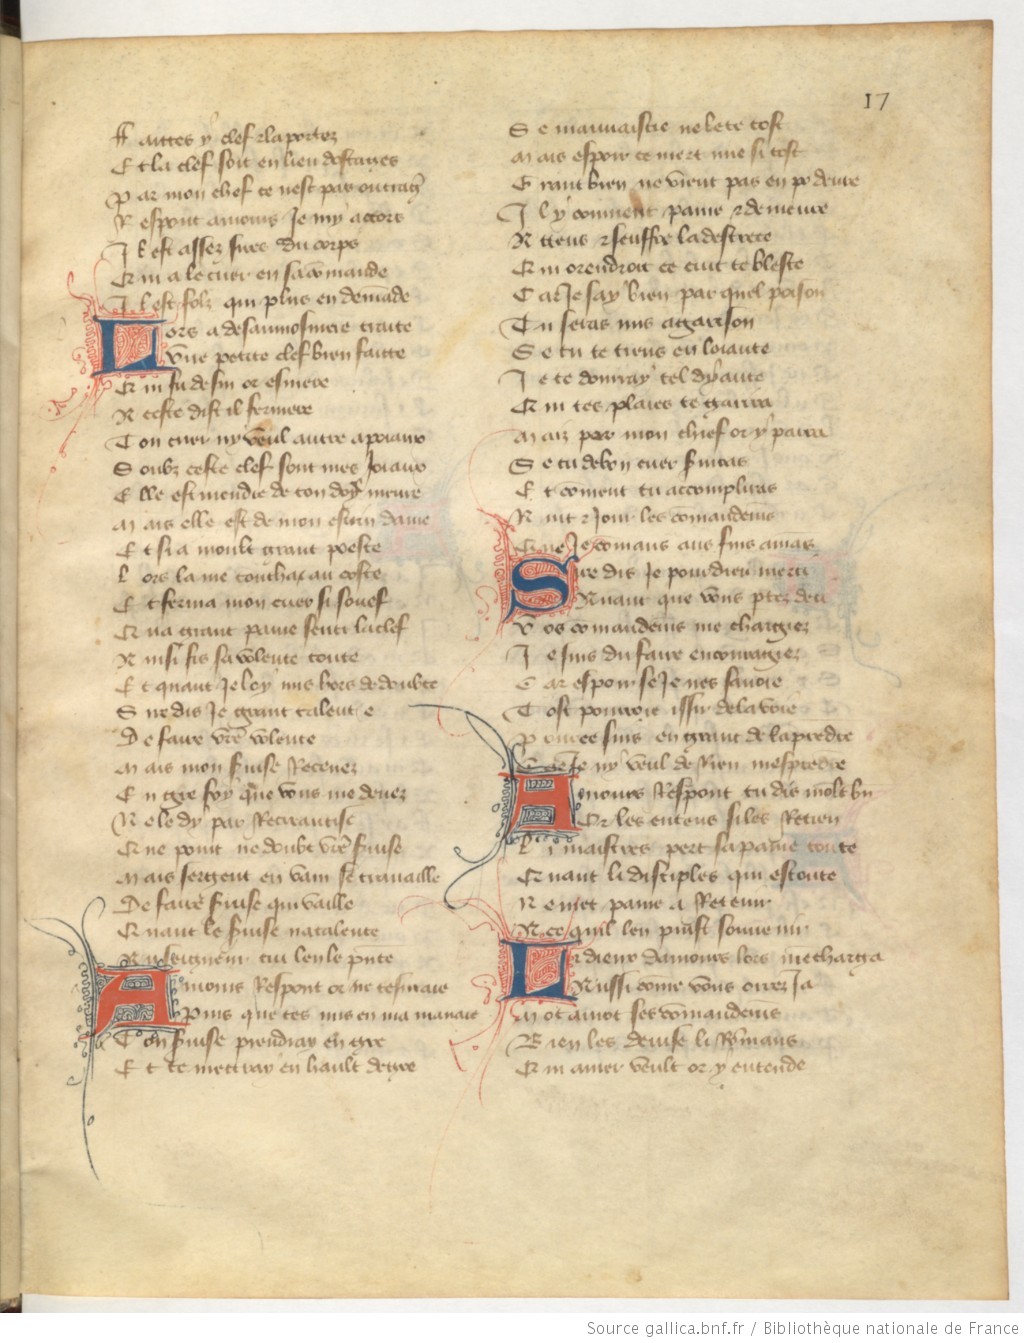 17
Faittes y clef & la portez
Et la clef soit en lieu dostages
Par mon chef ce nest pas oultrag
Respont amours Je my acors
Il est assez sires du corps
Qui a le cuer en sa comande
Il est folz qui plus en demande
Lors a de saumosniere traite
Une petite clef bien faitte
Qui fu de fin or esmere
A ceste dist il fermere
Ton cuer ny veul autre apoiau
Soubz ceste clef sont mes Joiaux
Elle est mendre de ton doy
Mais elle est de mon escrin dame
Et si a moult grant poeste
Lors la me toucha au coste
Et ferma mon cuer si souef
Qua grant paine senti la clef
Ainsi fis sa volente toute
Et quant Je loy mis hors de doubte
Sire dis Je grant talent e
De faire vre volente
Mais mon seruise Receuez
En gre foy que vous me deuez
Ne le dy par Recreantise
Car ne point ne doubt vre seruise
Mais sergent en vain se trauaille
De faire seruise qui vaille
Quant le seruise natalente
A u seigneur cui len le pnte
Amours Respont or ne tesmaie
Puis que tes mis en ma manaie
Ton seruise prendray en gre
Et te mettray en hault degre
Se mauuaistie ne le te tost
Mais espoir ce niert mie si tost
Grant bien ne vient pas en po deure
Il y conuient paine & demeure
Atens & seuffre la destrece
Qui orendroit te cuit te blesce
Car Je say bien par quel poison
Tu seras mis a garison
Se tu te tiens en loiaute
Je te donray tel dyaute
Qui tes plaies te garira
Mais par mon chief or y parra
Se tu de bon cuer seruiras
Et coment tu accompliras
Nuit & Jour les comandemens
Que Je comans aus fins amans
Sire dis Je pour dieu merci
Auant que vous partez de ci
Vos comandemens me chargiez
Je suis du faire encoragiez
Car espoir se Je nes sauoie
Tost pourroie issir de la voie
Pource suis en grant de laprendre
Que Je ny veul de Rien mesprendre
Amours Respont tu dis molt bn
Or les entens si les Retien
Li maistres pert sa paine toute
Quant li disciples qui escoute
Ne met paine a Retenir
A ce quil len puist souuenir
Li dieux damours lors me charga
Aussi come vous orrez Ja
Mot a mot ses comandemens
Bien les deuise li Romans
Qui amer veult or y entende
Source gallica.bnf.fr / Bibliothèque nationale de France